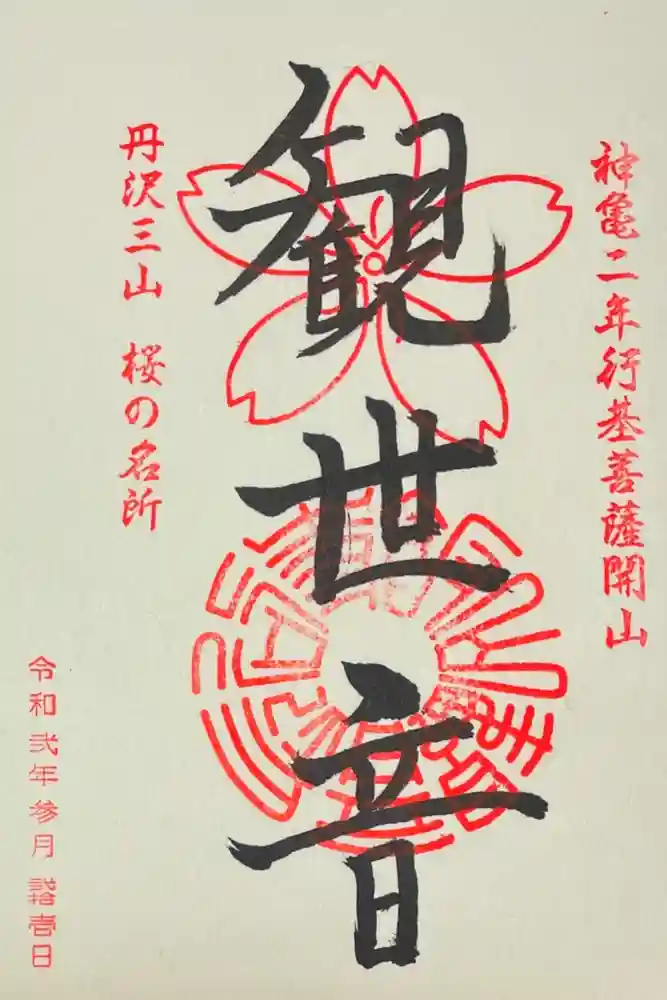 神亀二年行基菩薩開山
観世音
丹沢三山 桜の名所
令和弐年参月弐拾壱日